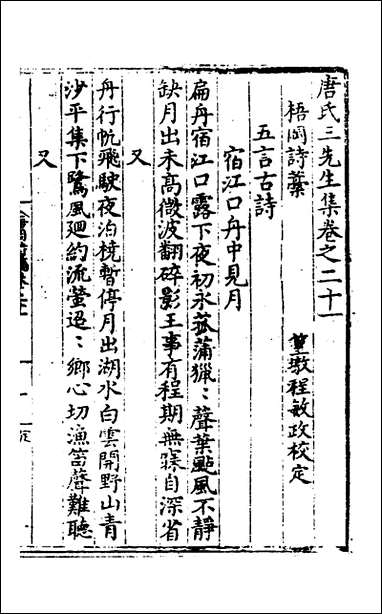 唐氏三先生集卷之二十一
梧岡詩藁
篁墩程敏政校定
五言古詩
宿江口舟中見月
扁舟宿江口露下夜初永菰蒲獵：聲葉颭風不靜
缺月出未高微波翻碎影王事有程期無寐自深省
又
舟行帆飛駛夜泊橈暫停月出湖水白雲開野山青
沙平集下鷺風迴約流螢迢：鄉心切漁笛聲難聽
又